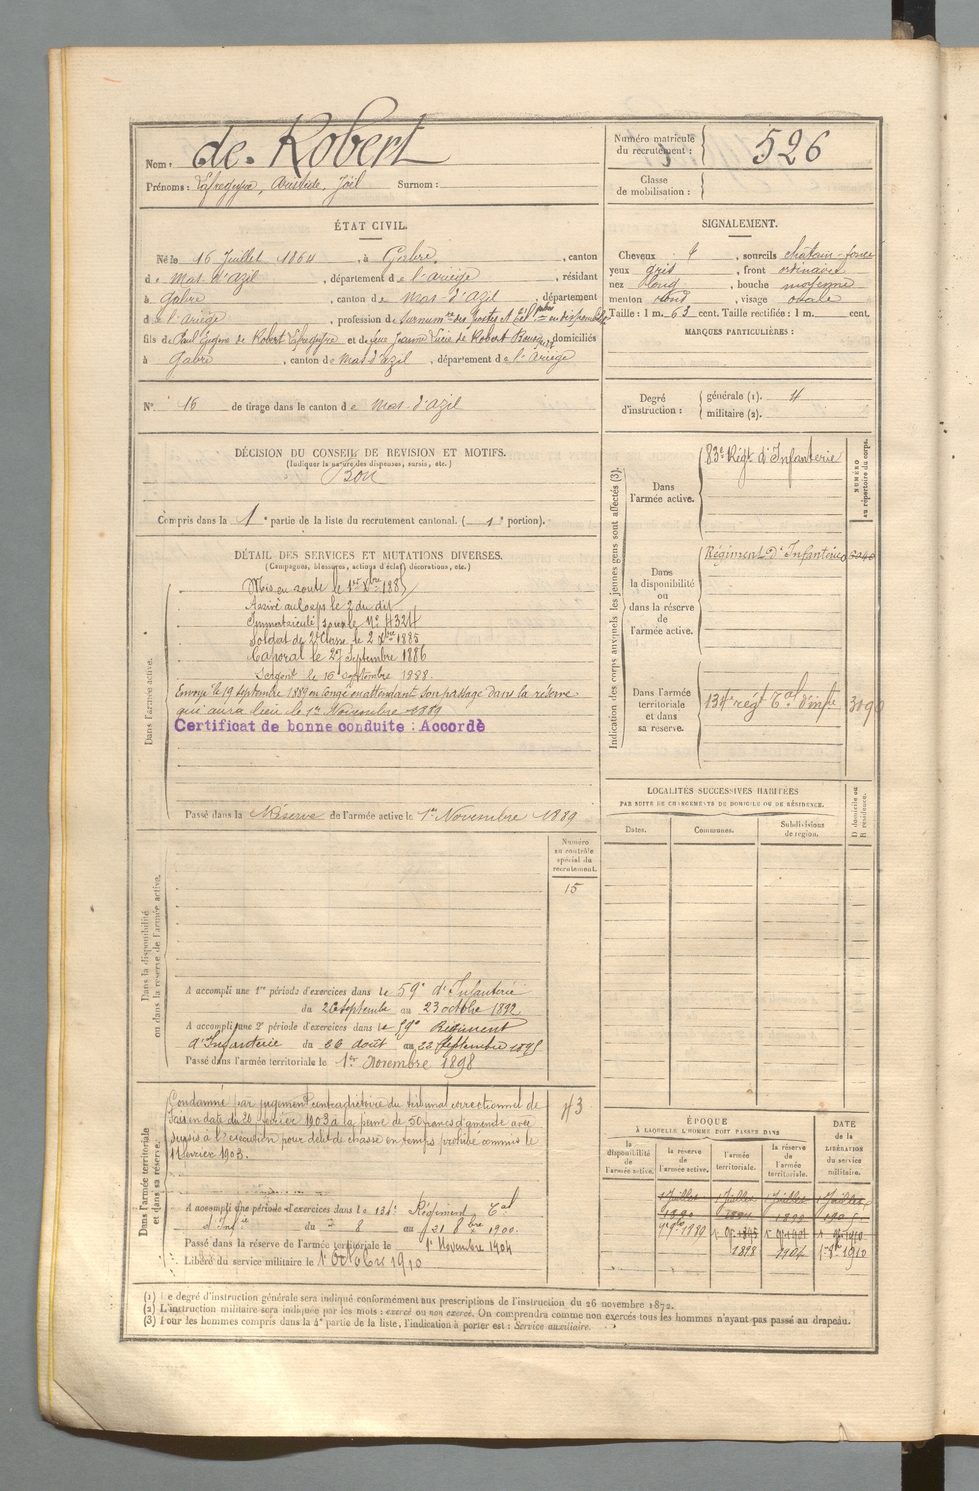 Nom : de Robert
Prénoms : Lafregeyre, Aristide, Joël Surnom :
Numéro matricule du recrutement : 526
Classe de mobilisation :
ÉTAT CIVIL.
Né le 16 Juillet 1864, à Gabre, canton
de Mas-d'azil, département de l'Ariège, résidant
à Gabre, canton de Mas-d'Azil, département
de l'Ariège, profession de Surnum.re des Postes et
fils de Paul Eugène de Robert Lafregeyre et de feue Jeanne Lucie de Robert domiciliés
à Gabre, canton de Mas d'azil, département de l'Ariège
N° 16 de tirage dans le canton de Mas-d'Azil
SIGNALEMENT.
Cheveux , sourcils châtain-foncé
yeux gris, front ordinaire
nez long, bouche moyenne
menton rond, visage ovale
Taille : 1 m. 63 cent. Taille rectifiée : 1 m. cent.
MARQUES PARTICULIÈRES :
Degré d'instruction : générale (1). 4
militaire (2).
DÉCISION DU CONSEIL DE REVISION ET MOTIFS.
(Indiquer la nature des dispenses, sursis, etc.)
Bon
Compris dans la 1e partie de la liste du recrutement cantonal. (1e portion).
DÉTAIL DES SERVICES ET MUTATIONS DIVERSES.
(Campagnes, blessures, actions d'éclat, décorations, etc.)
Dans l'armée active.
Mis en route le 1er Xbre 1885
Arrivé au corps le 2 du dit
Immatriculé sous le N° 4324
Soldat de 2e Classe le 2 Xbre 1885
Caporal le 27 Septembre 1886
Sergent le 16 septembre 1888.
Envoyé le 19 septembre 1889 en congé en attendant son passage dans la réserve
qui aura lieu le 1er Novembre 1889
Certificat de bonne conduite : Accordé
Passé dans la Réserve de l'armée active le 1er Novembre 1889
Indication des corps auxquels les jeunes gens sont affectés (3).
NUMÉRO au répertoire du corps.
Dans l'armée active. 83e Régt d'Infanterie
Dans la disponibilité ou dans la réserve de l'armée active. Régiment d'Infanterie
Dans l'armée territoriale et dans sa réserve. 134e régt Tal d'infie 3090
LOCALITÉS SUCCESSIVES HABITÉES
PAR SUITE DE CHANGEMENTS DE DOMICILE OU DE RÉSIDENCE.
Dates. Communes. Subdivisions de région. D domicile ou R résidence.
Dans la disponibilité ou dans la réserve de l'armée active.
Numéro au contrôle spécial du recrutement.
15
A accompli une 1re période d'exercices dans le 59e d'Infanterie
du 26 septembre au 23 octobre 1892
A accompli une 2e période d'exercices dans le 59e Régiment
d'Infanterie du 26 août au 22 Septembre 1895
Passé dans l'armée territoriale le 1er Novembre 1898
Dans l'armée territoriale et dans sa réserve.
Condamné par jugement contradictoire du tribunal correctionnel de
en date du 20 février 1903 à la peine de 50 francs d'amende avec
sursis à l'exécution pour délit de chasse en temps prohibé commis le
1 février 1903.
43
A accompli une période d'exercices dans le 134e Régiment Tal
d'Infie du 8 au 21 8bre 1900.
Passé dans la réserve de l'armée territoriale le 1er Novembre 1904
Libéré du service militaire le 1er Octobre 1910
ÉPOQUE
À LAQUELLE L'HOMME DOIT PASSER DANS
la disponibilité de l'armée active. la réserve de l'armée active. l'armée territoriale. la réserve de l'armée territoriale.
DATE de la LIBÉRATION du service militaire.
1 Juillet 1 Juillet 1 Juillet 1 Juillet
1898 1904 1910
(1) Le degré d'instruction générale sera indiqué conformément aux prescriptions de l'instruction du 26 novembre 1872.
(2) L'instruction militaire sera indiquée par les mots : exercé ou non exercé. On comprendra comme non exercés tous les hommes n'ayant pas passé au drapeau.
(3) Pour les hommes compris dans la 4e partie de la liste, l'indication à porter est : Service auxiliaire.